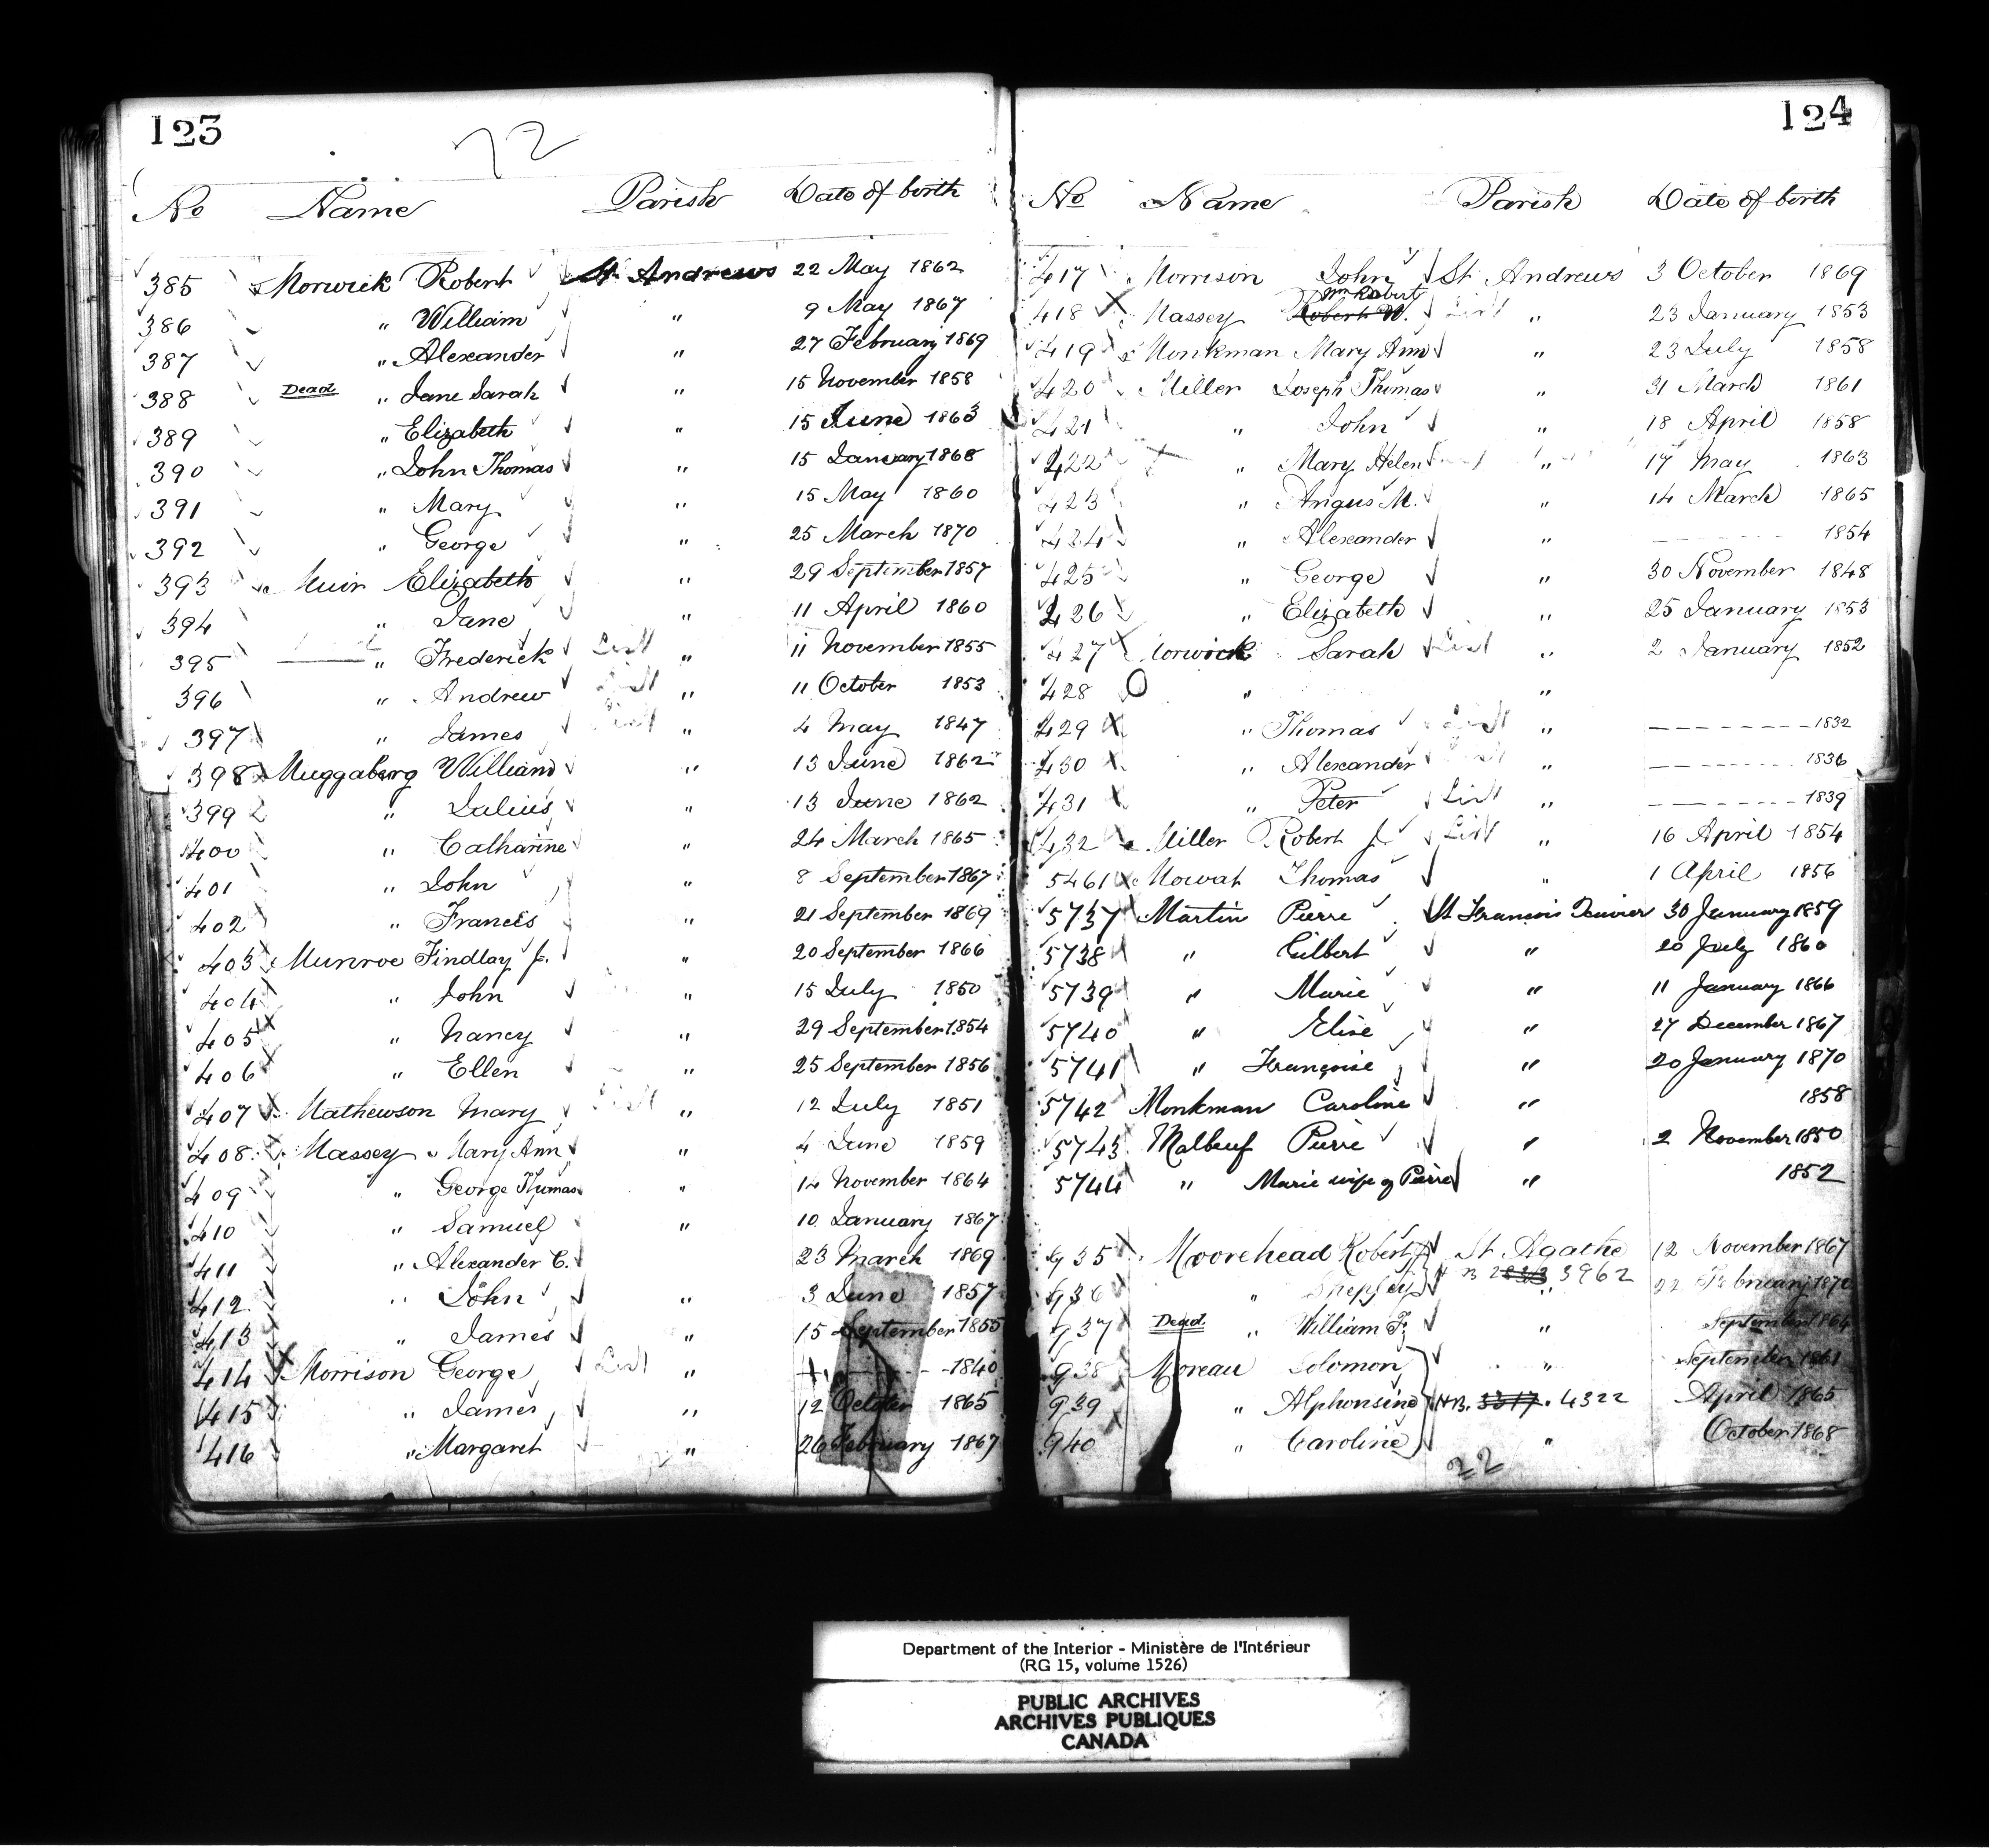 123
72
No Name Parish Date of birth
385 Morwick Robert St. Andrews 22 May 1862
386 " William " 9 May 1867
387 " Alexander " 27 February 1869
388 Dead " Jane Sarah " 15 November 1858
389 " Elizabeth " 15 June 1863
390 " John Thomas " 15 January 1868
391 " Mary " 15 May 1860
392 " George " 25 March 1870
393 Muir Elizabeth " 29 September 1857
394 " Jane " 11 April 1860
395 " Frederick List " 11 November 1855
396 " Andrew List " 11 October 1853
397 " James List " 4 May 1847
398 Muggaberg William " 13 June 1862
399 " Julius " 13 June 1862
400 " Catharine " 24 March 1865
401 " John " 8 September 1867
402 " Francis " 21 September 1869
403 Munroe Findlay J. " 20 September 1866
404 " John " 15 July 1850
405 " Nancy " 29 September 1854
406 " Ellen " 25 September 1856
407 Mathewson Mary List " 12 July 1851
408 Massey Mary Ann " 4 June 1859
409 " George Thomas " 14 November 1864
410 " Samuel " 10 January 1867
411 " Alexander C. " 23 March 1869
412 " John " 3 June 1857
413 " James " 15 September 1855
414 Morrison George List " 1840
415 " James " 12 October 1865
416 " Margaret " 26 February 1867
124
No Name Parish Date of birth
417 Morrison John St Andrews 3 October 1869
Wm Robert
418 Massey Robert W. List " 23 January 1853
419 Monkman Mary Ann " 23 July 1858
420 Miller Joseph Thomas " 31 March 1861
421 " John " 18 April 1858
422 " Mary Helen " 17 May 1863
423 " Angus M. " 14 March 1865
424 " Alexander " 1854
425 " George " 30 November 1848
426 " Elizabeth " 25 January 1853
427 Morwick Sarah List " 2 January 1852
428 " "
429 " Thomas List " 1832
430 " Alexander List " 1836
431 " Peter List " 1839
432 Miller Robert J. List " 16 April 1854
5461 Mowat Thomas " 1 April 1856
5737 Martin Pierre St Francois Xavier 30 January 1859
5738 " Gilbert " 20 July 1860
5739 " Marie " 11 January 1866
5740 " Elise " 27 December 1867
5741 " Françoise " 20 January 1870
5742 Monkman Caroline " 1858
5743 Malbeuf Pierre " 2 November 1850
5744 " Marie wife of Pierre " 1852
935 Moorehead Robert St Agathe 12 November 1867
936 " Shepley 3962 " 22 February 1870
937 Dead " William F. " September 1864
938 Moreau Solomon " September 1861
939 " Alphonsine N.B. 3317. 4322 April 1865
940 " Caroline " October 1868
22
Department of the Interior - Ministère de l'Intérieur
(RG 15, volume 1526)
PUBLIC ARCHIVES
ARCHIVES PUBLIQUES
CANADA